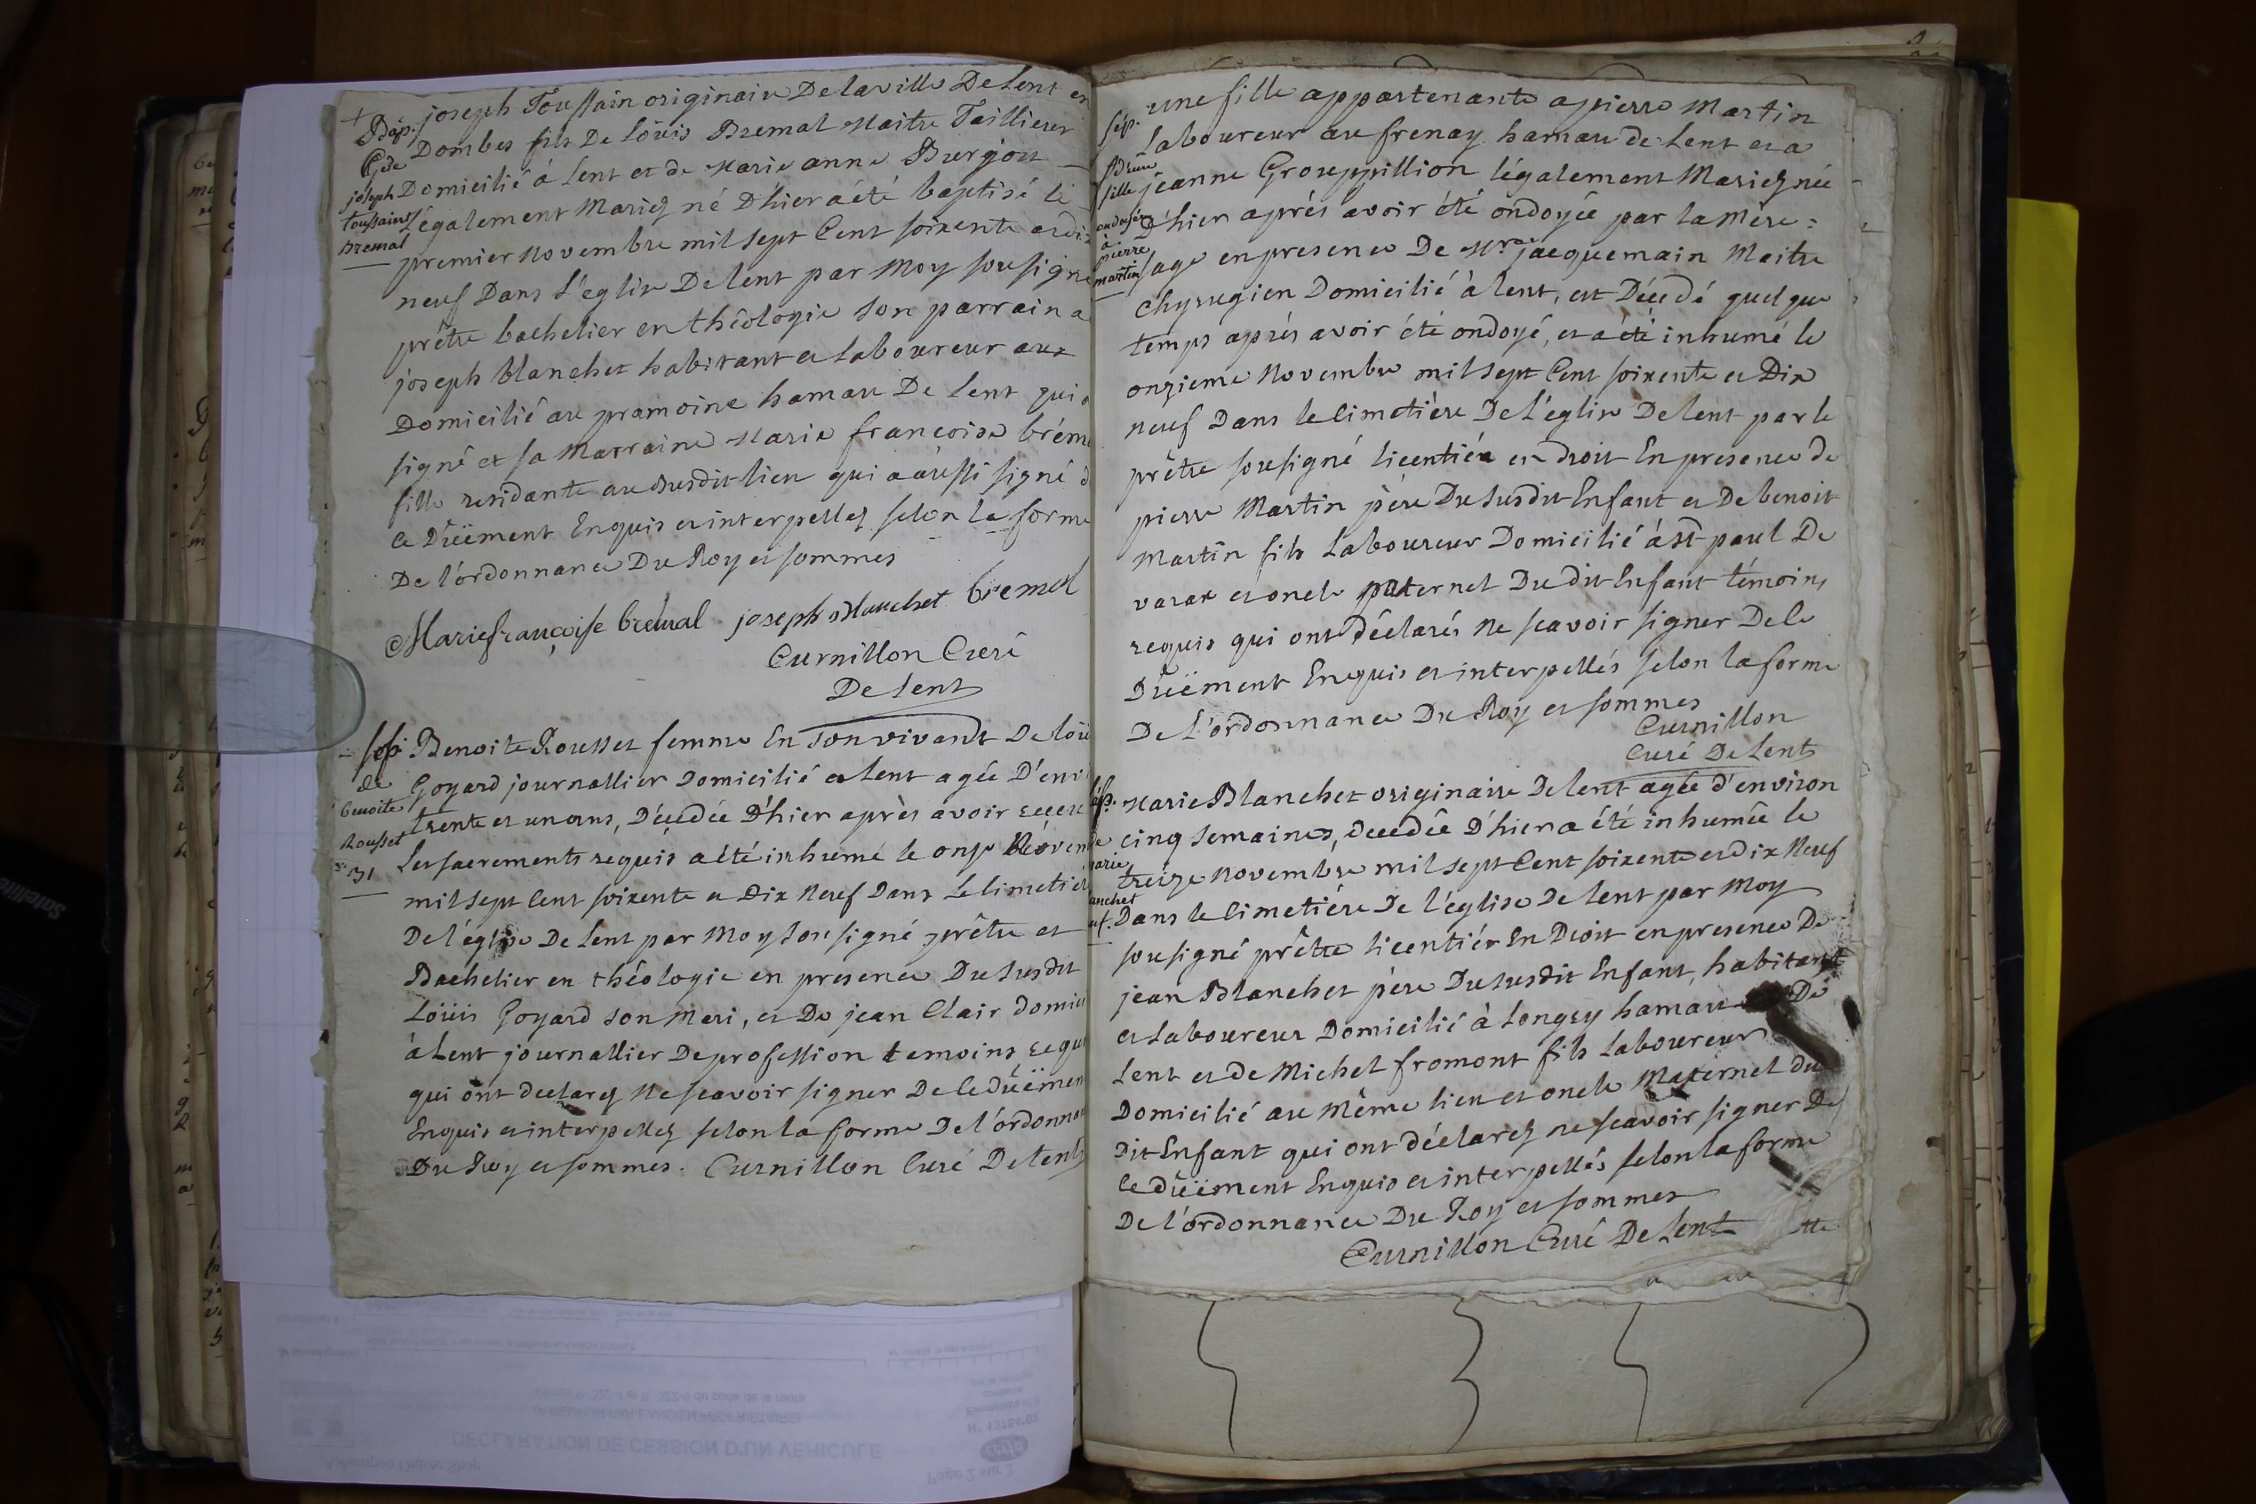 Bap.
de
joseph
toussains
Bremal
joseph Toussain originaire De la ville De Lent en
Dombes fils De Loüis Bremal Maitre Taillieur
Domicilié á Lent et de Marie anne Burgiou
légalement Mariez né D'hier a été baptisé le
premier Novembre mil sept Cent soixente et dix
neuf Dans L'eglise De lent par Moy sousigné
prêtre bachelier en thêologie son parrain a
joseph blanchet habitant et laboureur
Domicilié au pramoine hamau De lent qui a
signé et sa Marraine Marie francoise brém
fille residante au susdit lieu qui a aûssi signé d
ce Dûëment Enquis et interpellez selon la forme
De l'ordonnance Du Roy et sommes
Marie françoise bremal joseph Blanchet bremal
Curnillon Curé
De Lent
sép.
de
benoite
Rousset
31
Benoite Rousset femme En son vivant De Loü
Goyard journallier Domicilié a Lent agée D'envi
trente et un ans, Décedée D'hier après avoir receu
Les sacrements requis a été inhumé le onze Noven
mil sept Cent soixente et Dix Neuf Dans Le Cimetiér
De l'église De Lent par Moy sousigné prêtre et
Bachelier en thêologie en presence Du susdit
Loüis Goyard son Mari, et De jean Clair domici
à Lent journallier De profession temoins requ
qui ont declarez Ne scavoir signer De le dûëmen
Enquis et interpellez selon la forme De l'ordonnan
Du Roy et sommes. Curnillon Curé De Lent
sép.
d'une
fille
ondoyée
a
pierre
martin
une fille appartenante a pierre Martin
Laboureur au frenay hamau de Lent et a
jeanne Grosuppillion légalement Mariez née
D'hier après avoir été ondoyée par la Mere:
sage en presence De Mr. jacquemain Maitre
chyrugien Domicilié à lent, est Décedé quelque
temps après avoir été ondoyé, et a été inhumé le
onzieme Novembre mil sept Cent soixente et Dix
neuf Dans le Cimetière De L'église De lent par le
prêtre sousigné licentiér en droit En presence de
pierre Martin père Du susdit Enfant et De benoit
Martin fils Laboureur Domicilié à st paul De
varax et oncle paternel Du dit Enfant témoins
requis qui ont déclarés Ne scavoir signer De le
Dûëment Enquis et interpellés selon la forme
De L'ordonnance Du Roy et sommes
Curnillon
Curé De Lent
sép.
de
marie
anchet
enf.
Marie Blanchet originaire De lent agée d'environ
cinq Semaines, décedée D'hier a été inhumée le
treize Novembre mil sept Cent soixente et dix Neuf
Dans le Cimetiére De l'église De lent par Moy
sousigné prêtre licentiér En Droit en presence De
jean Blanchet père Du susdit Enfant, habitant
et Laboureur Domicilié à Longry hamau De
Lent et de Michel fromont fils Laboureur
Domicilié au Même lieu et oncle Maternel du
dit Enfant qui ont déclarez ne scavoir signer De
ce dûëment Enquis et interpellés selon la forme
De l'ordonnance Du Roy et sommes
Curnillon Curé De Lent